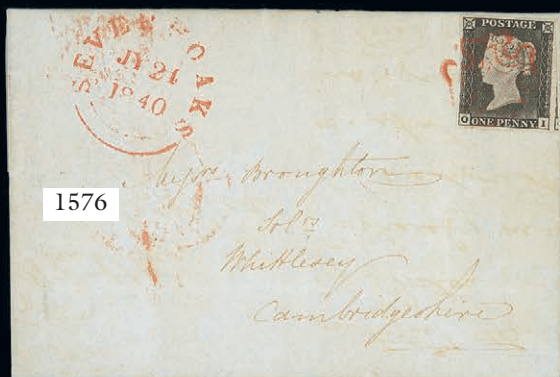 SEVENOAKS
JY 21
1840
POSTAGE
O I
ONE PENNY
1576
Messrs Broughton
Solrs
Whittlesey
Cambridgeshire